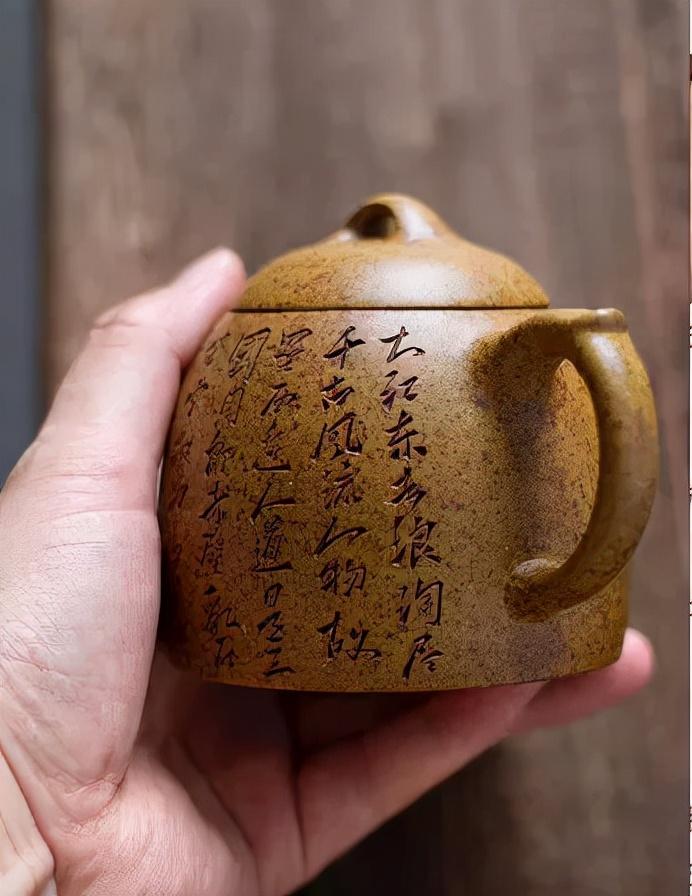 大江东去浪淘尽
千古風流人物故
垒西边人道是三
國周郎赤壁亂石